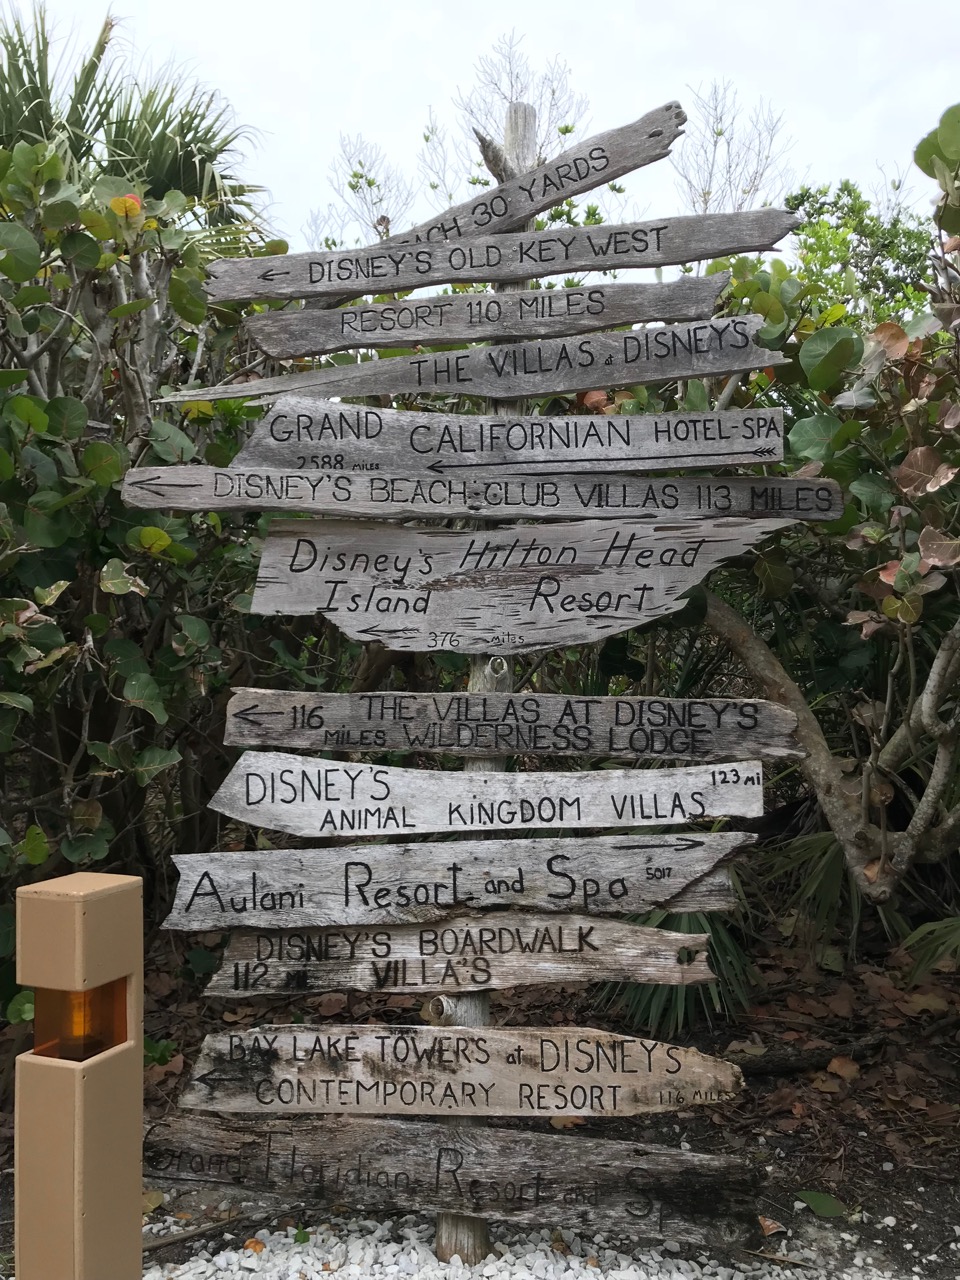 30 YARDS
← DISNEY'S OLD KEY WEST
RESORT 110 MILES
THE VILLAS at DISNEY'S
GRAND CALIFORNIAN HOTEL-SPA
2588 MILES ←
← DISNEY'S BEACH CLUB VILLAS 113 MILES
Disney's Hilton Head
Island Resort
← 376 miles
← 116 THE VILLAS AT DISNEY'S
MILES WILDERNESS LODGE
DISNEY'S 123 mi
ANIMAL KINGDOM VILLAS
→
Aulani Resort and Spa 5017
DISNEY'S BOARDWALK
112 VILLA'S
BAY LAKE TOWER'S at DISNEY'S
← CONTEMPORARY RESORT 116 MILES
Grand Floridian Resort and